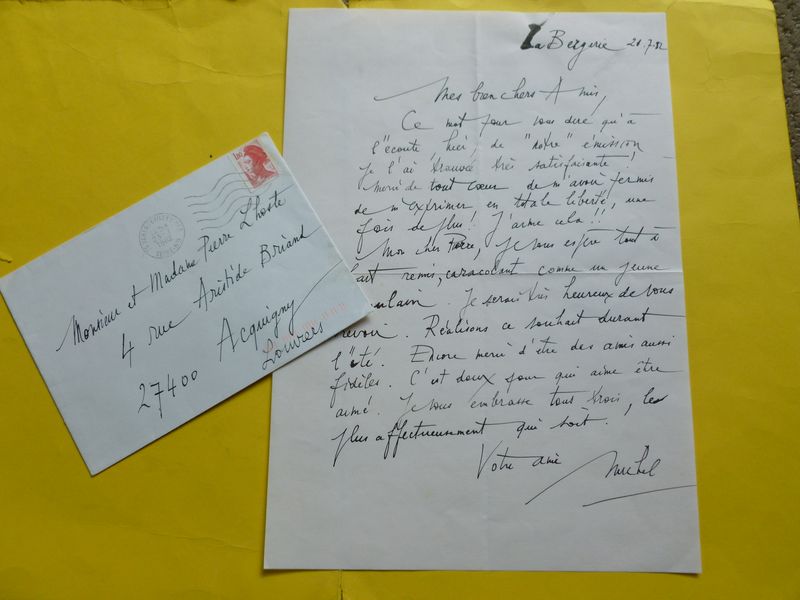 La Bergerie 20.7.82
Mes bien chers Amis,
Ce mot pour vous dire qu'à
l'écoute, hier, de "notre" émission
je l'ai trouvée très satisfaisante !
Merci de tout cœur de m'avoir permis
de m'exprimer en totale liberté, une
fois de plus ! J'aime cela !!
Mon cher Pierre, je vous espère tout à
fait remis, caracolant comme un jeune
poulain. Je serai très heureux de vous
revoir. Réalisons ce souhait durant
l'été. Encore merci d'être des amis aussi
fidèles. C'est doux pour qui aime être
aimé. Je vous embrasse tous trois, le
plus affectueusement qui soit.
Votre ami Michel
1,80
Monsieur et Madame Pierre Lhoste
4 rue Aristide Briand
27400 Acquigny
Louviers